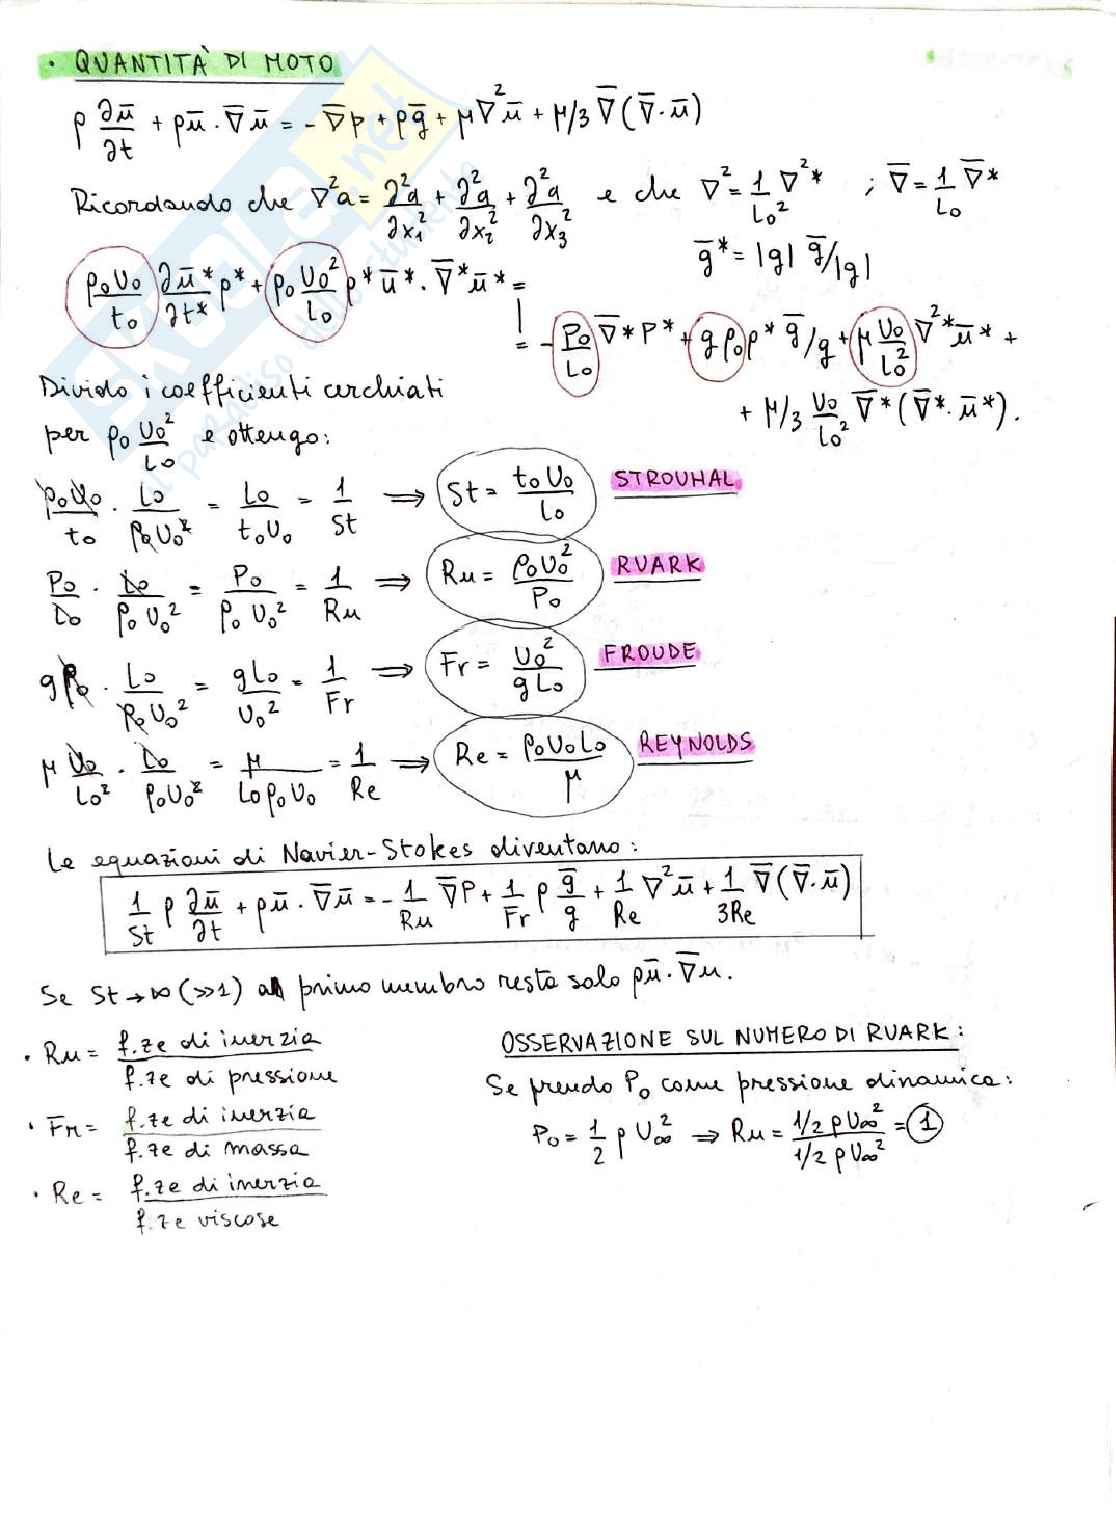 · QUANTITÀ DI MOTO
ρ ∂ū/∂t + ρū · ∇̄ū = - ∇̄p + ρḡ + μ∇²ū + μ/3 ∇̄(∇̄·ū)
Ricordando che ∇²a = ∂²a/∂x₁² + ∂²a/∂x₂² + ∂²a/∂x₃² e che ∇² = 1/L₀² ∇²* ; ∇̄ = 1/L₀ ∇̄*
ḡ* = |g| ḡ/|g|
ρ₀U₀/t₀ ∂ū*/∂t* ρ* + ρ₀ U₀²/L₀ ρ* ū* · ∇̄* ū* =
= - P₀/L₀ ∇̄* P* + gρ₀ρ* ḡ/g + μ U₀/L₀² ∇²* ū* +
+ μ/3 U₀/L₀² ∇̄* (∇̄* · ū*).
Divido i coefficienti cerchiati
per ρ₀ U₀²/L₀ e ottengo:
ρ₀U₀/t₀ · L₀/ρ₀U₀² = L₀/t₀U₀ = 1/St ⟹ St = t₀U₀/L₀ STROUHAL
P₀/L₀ · L₀/ρ₀U₀² = P₀/ρ₀U₀² = 1/Ru ⟹ Ru = ρ₀U₀²/P₀ RUARK
gρ₀ · L₀/ρ₀U₀² = gL₀/U₀² = 1/Fr ⟹ Fr = U₀²/gL₀ FROUDE
μ U₀/L₀² · L₀/ρ₀U₀² = μ/L₀ρ₀U₀ = 1/Re ⟹ Re = ρ₀U₀L₀/μ REYNOLDS
Le equazioni di Navier-Stokes diventano:
1/St ρ ∂ū/∂t + ρū · ∇̄ū = - 1/Ru ∇̄P + 1/Fr ρ ḡ/g + 1/Re ∇²ū + 1/3Re ∇̄(∇̄·ū)
Se St → ∞ (≫1) al primo membro resta solo ρū · ∇̄u.
· Ru = f.ze di inerzia/f.ze di pressione
· Fr = f.ze di inerzia/f.ze di massa
· Re = f.ze di inerzia/f.ze viscose
OSSERVAZIONE SUL NUMERO DI RUARK:
Se prendo P₀ come pressione dinamica:
P₀ = 1/2 ρ U∞² ⟹ Ru = 1/2 ρU∞²/1/2 ρU∞² = 1
SKUOLA.net
il paradiso dello studente